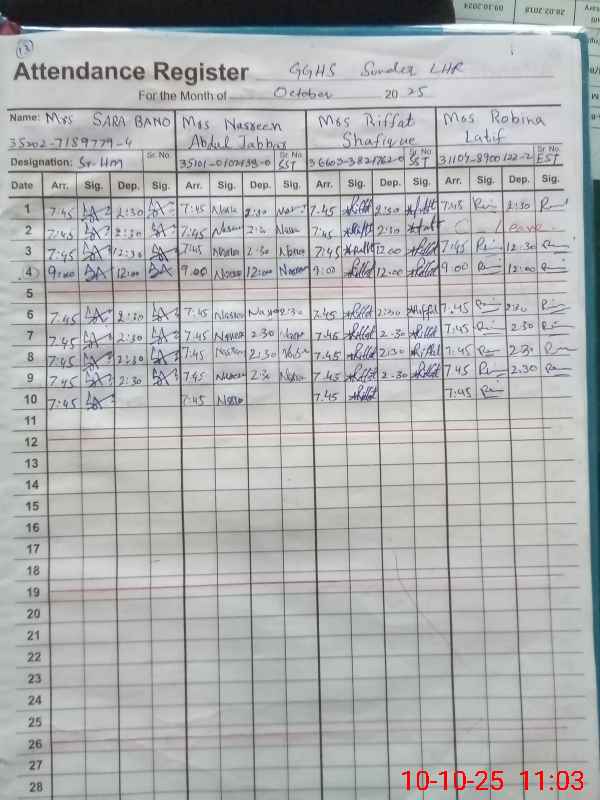 09.10.2024 28.02.2018
(13)
Attendance Register GGHS Sunder LHR
For the Month of October 20 25
Name: Mrs SARA BANO Mrs Nasreen Abdul Jabbar Mrs Riffat Shafique Mrs Robina Latif
35202-7189779-4
Designation: Sr. HM Sr. No. 35101-0102139-0 Sr. No. SST 36603-3821762-0 Sr. No. SST 31104-8900122-2 Sr. No. EST
Date Arr. Sig. Dep. Sig. Arr. Sig. Dep. Sig. Arr. Sig. Dep. Sig. Arr. Sig. Dep. Sig.
1 7:45 2:30 7:45 2:30 7.45 2:30 7:45 2:30
2 7:45 2:30 7:45 2:30 7.45 2:30 C. Leave
3 7:45 12:30 7:45 2:30 7:45 12:00 7:45 12:30
4 9:00 12:00 9.00 12:00 9:00 12:00 9:00 12:00
5
6 7:45 2:30 7:45 2:30 7.45 2:30 7.45 2:30
7 7:45 2:30 7:45 2:30 7.45 2:30 7:45 2:30
8 7:45 2:30 7:45 2:30 7.45 2:30 7:45 2:30
9 7:45 2:30 7:45 2:30 7.45 2:30 7:45 2:30
10 7:45 7:45 7.45 7:45
11
12
13
14
15
16
17
18
19
20
21
22
23
24
25
26
27
28
10-10-25 11:03